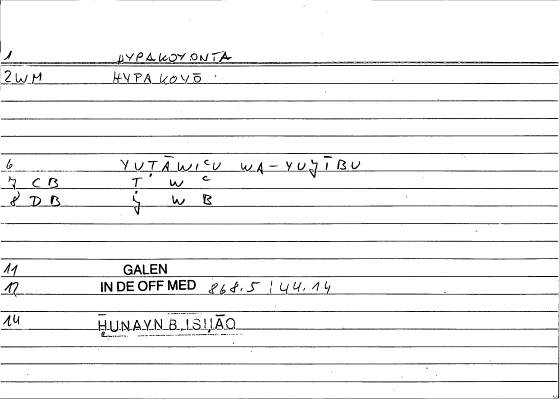 1 HYPAKOYONTA
2 WM HYPAKOYŌ
6 YUṬĀWIʿU WA-YUǦĪBU
7 CB Ṭ W ʿ
8 DB Ǧ W B
11 GALEN
12 IN DE OFF MED 868.5 / 44.14
14 ḤUNAYN B. ISḤĀQ